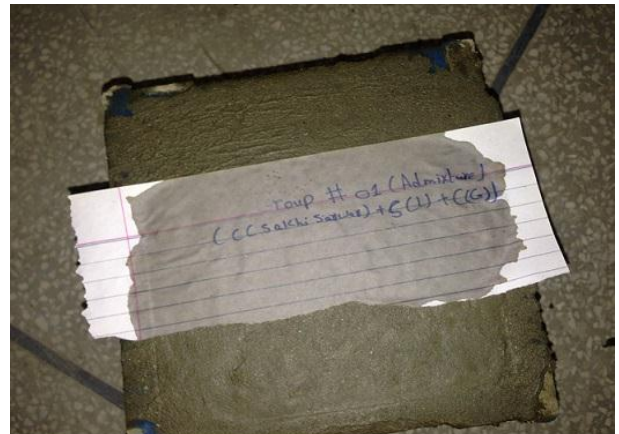 roup # 01 (Admixture)
(CC(Sakhi Sarwar) + S(L) + C(G))